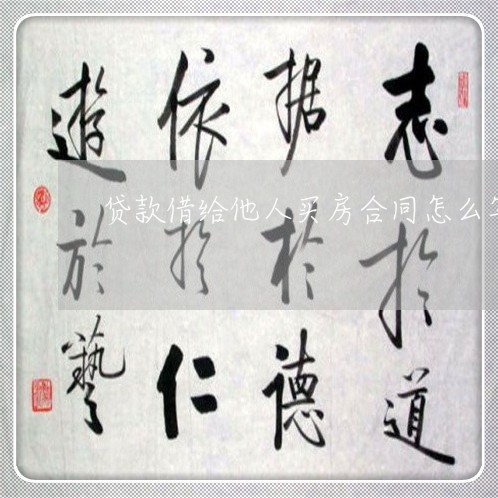 志於道
据於德
依於仁
遊於藝
贷款借给他人买房合同怎么